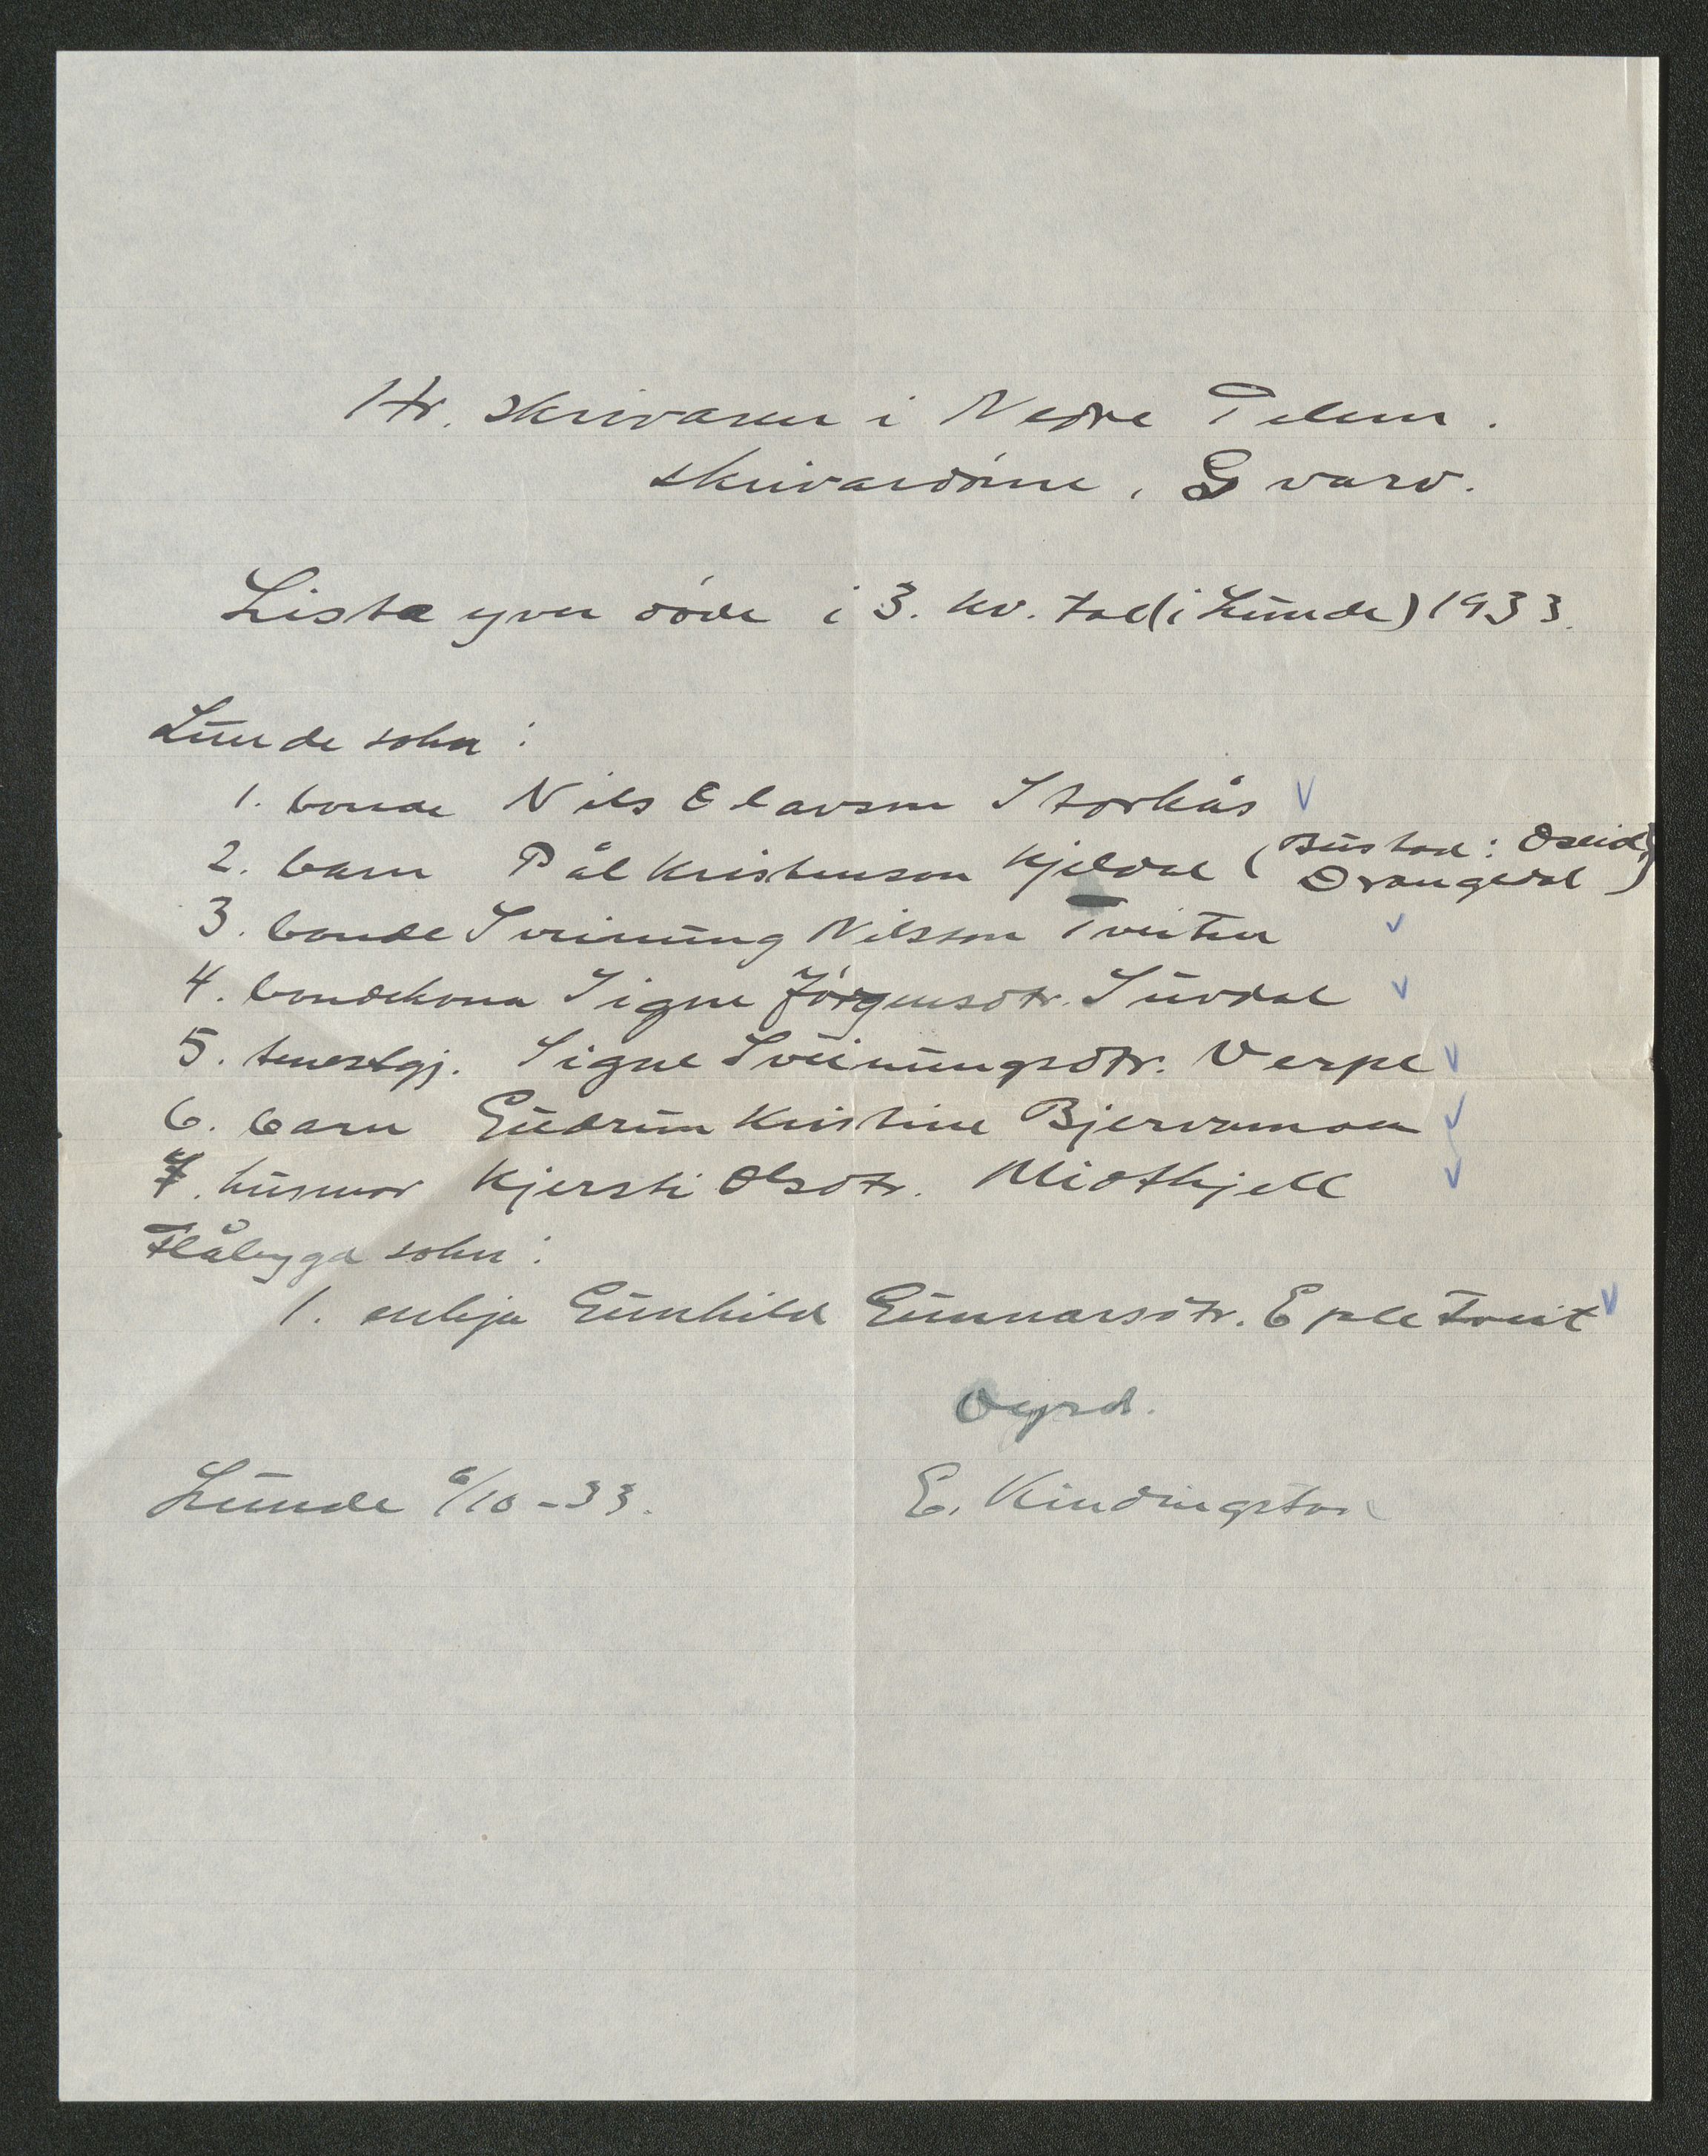 Hr. Skrivaren i Nedre Telem.
skrivardöme, Gvarv.
Lista yver döde i 3. kv. tal (i Lunde) 1933.
Lunde sokn:
1. bonde Nils Elavson Storkås V
2. barn Pål Kristenson Kjeldal (Bustad: Oseid,
Drangedal)
3. bonde Sveinung Nilsson Tveiten V
4. bondekona Signe Jörgensdtr. Suvdal V
5. tenestgj. Signe Sveinungsdtr. Verpe V
6. barn Gudrun Kristine Bjervamoen V
7. husmor Kjersti Olsdtr. Midtkjell V
Flåbygd sokn:
1. enkja Gunhild Gunnarsdtr. Epletveit V
Vyrd.
Lunde 6/10-33. E. Kindingstad